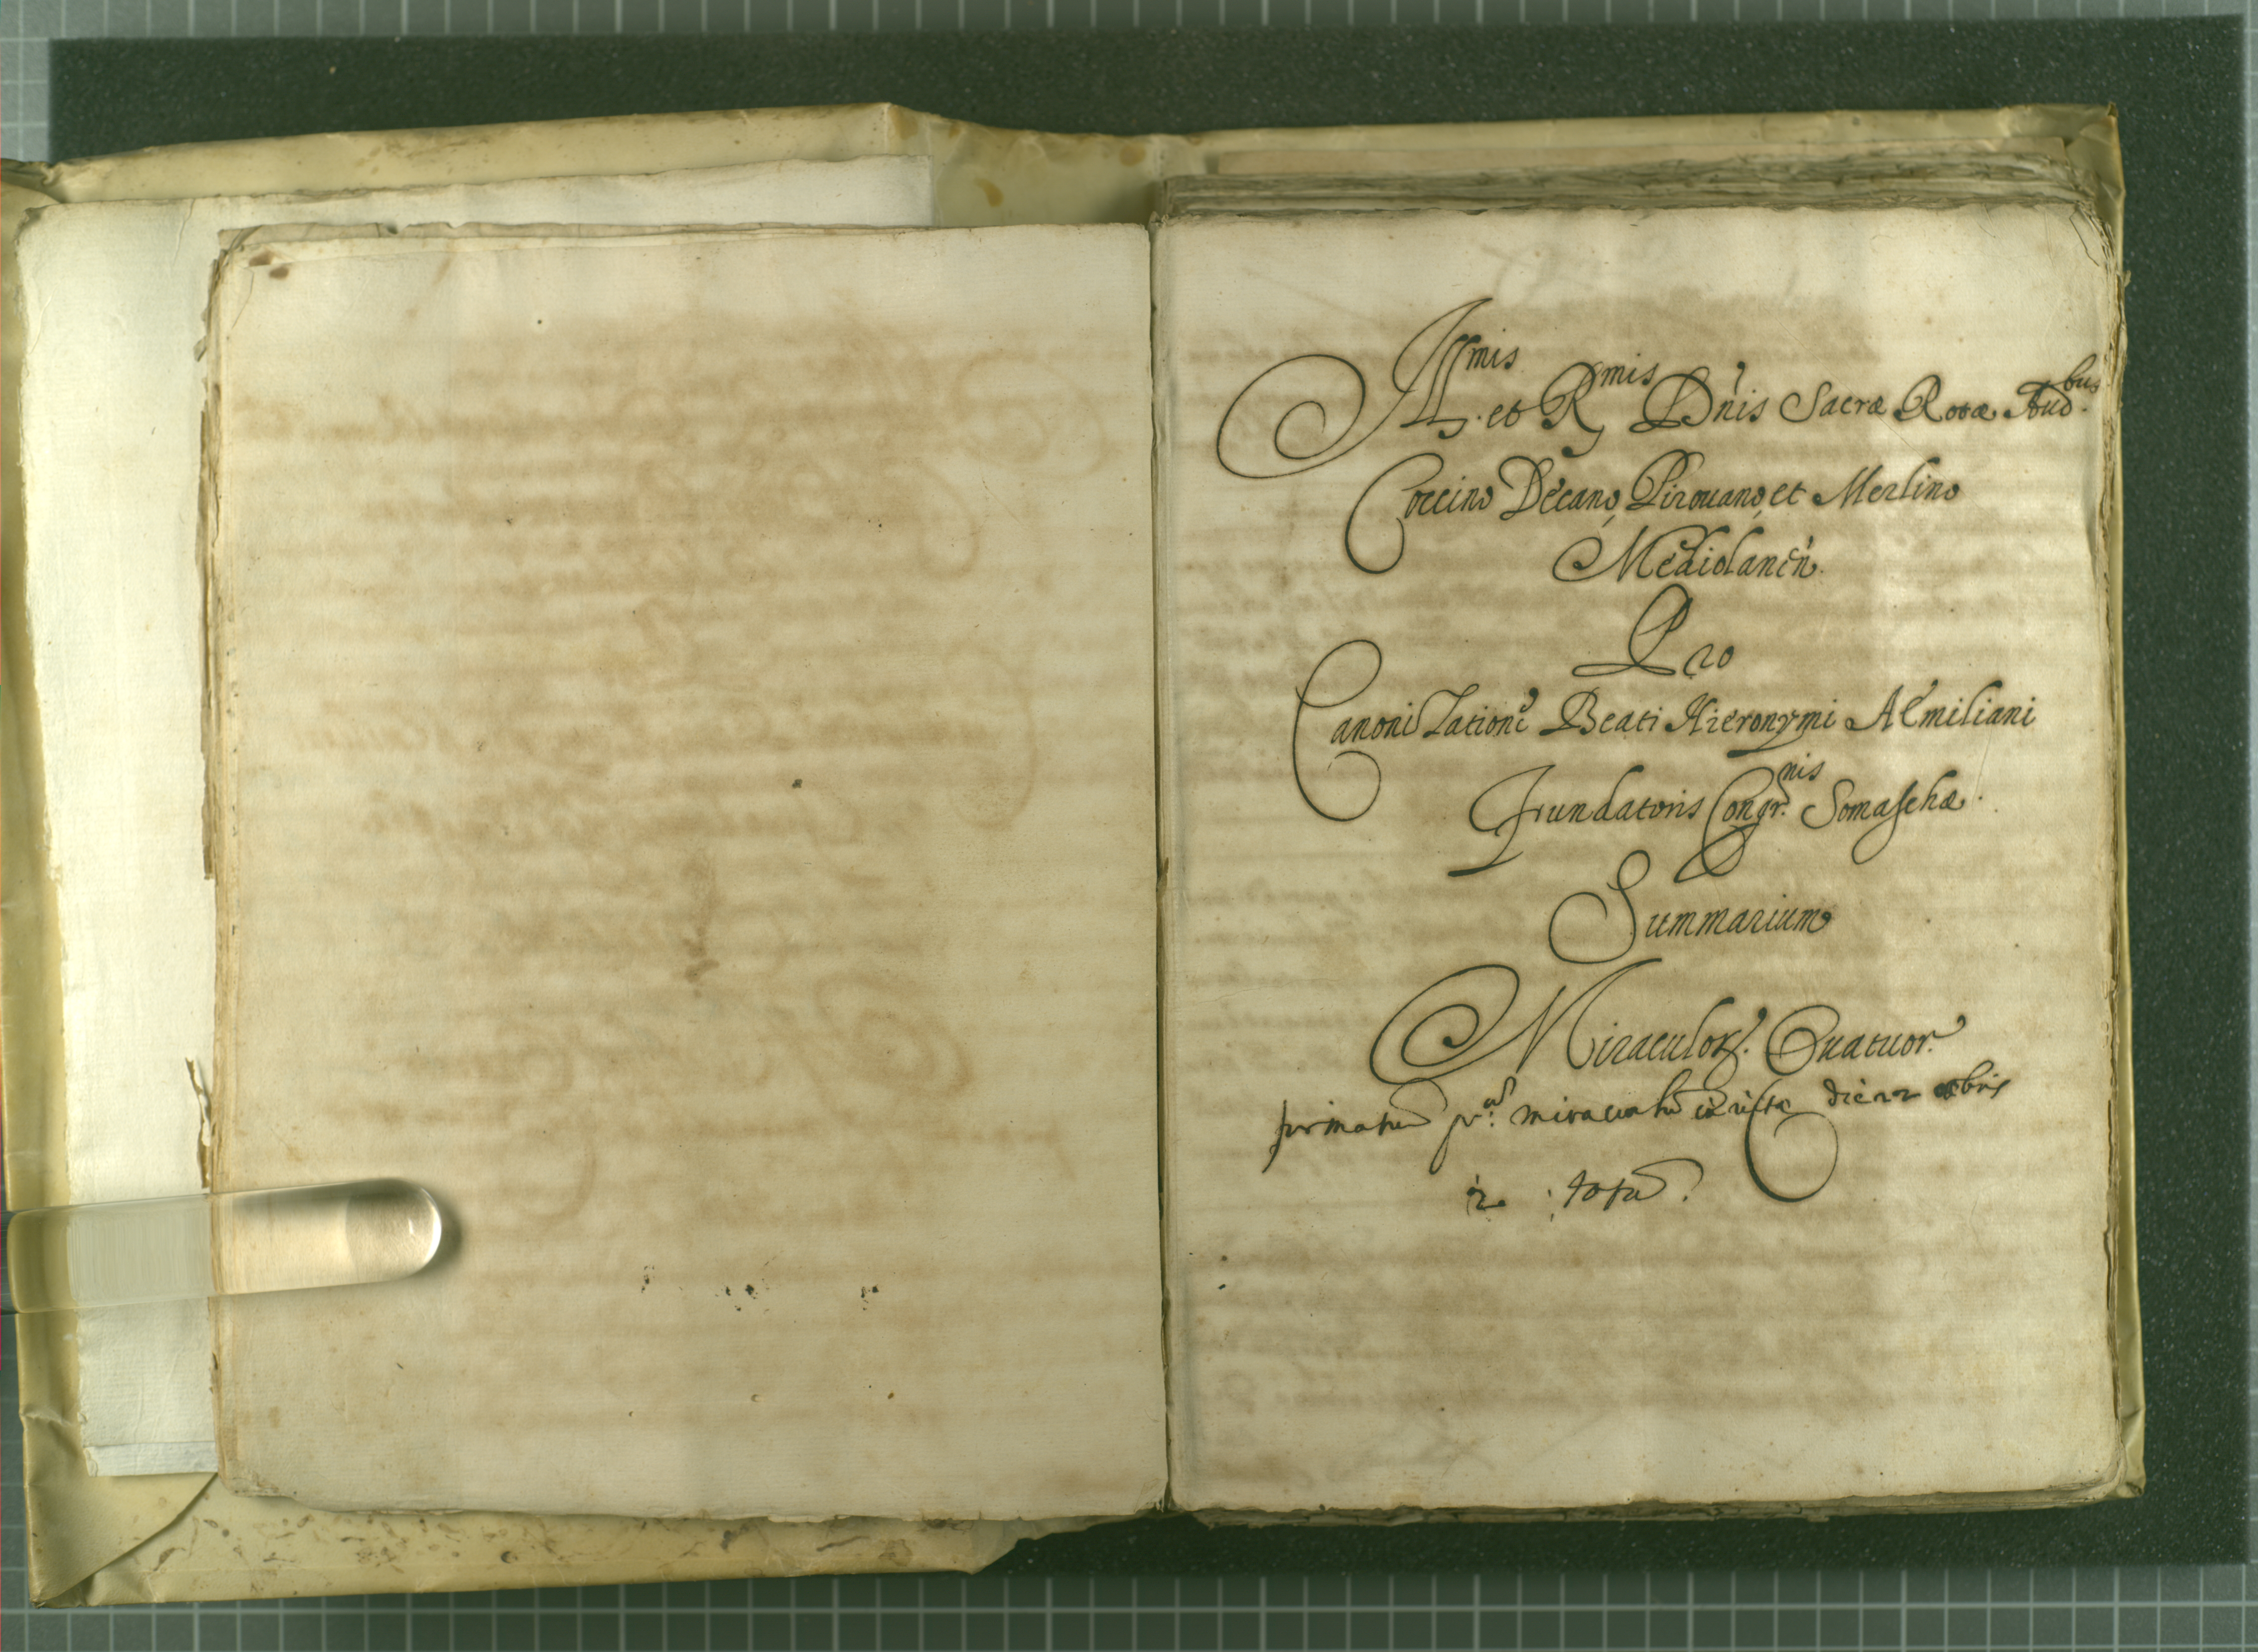 Ill.mis et R.mis D'nis Sacræ Rotæ Aud.bus
Coccino Decano, Pirouano, et Merlino
Mediolanen̄.
Pro
Canonizatione Beati Hieronymi AEmiliani
Fundatoris Congr.nis Somaschæ.
Summarium
Miraculoꝝ. Quatuor.
miraculū die 22